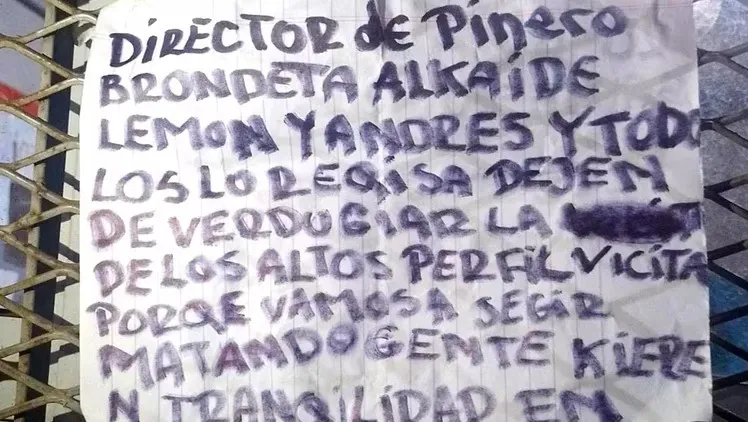 DIRECTOR de Pinero
BRONDETA ALKAIDE
LEMON Y ANDRES Y TODO
LOS LO REQISA DEJEN
DE VERDUGIAR LA
DE LOS ALTOS PERFIL VICITA
PORQE VAMOS A SEGIR
MATANDO GENTE KIERE
N TRANQILIDAD EN